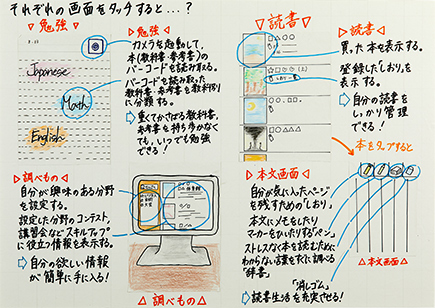 それぞれの画面をタッチすると…?
▽勉強▽
Japanese
Math
English
▷勉強◁
カメラを起動して、
本(教科書・参考書)の
バーコードを読み取る。
バーコードを読み取った
教科書、参考書を教科別
に分類する。
⇨重くてかさばる教科書、
参考書を持ち歩かなく
ても、いつでも勉強
できる!
▽読書▽
▷読書◁
買った本を表示する。
登録した「しおり」を
表示する。
⇨自分の読書を
しっかり管理
できる!
本をタップすると
▷調べもの◁
自分が興味のある分野
を設定する。
設定した分野のコンテスト、
講習会などスキルアップ
に役立つ情報を表示する。
⇨自分の欲しい情報
が簡単に手に入る!
△調べもの△
▷本文画面◁
自分が気に入ったページ
を残すための「しおり」
本文にメモをしたり
マーカーをひいたりする「ペン」
ストレスなく本を読むために
わからない言葉をすぐに調べる
「辞書」
「消しゴム」
⇨読書生活を充実させる!
△本文画面△